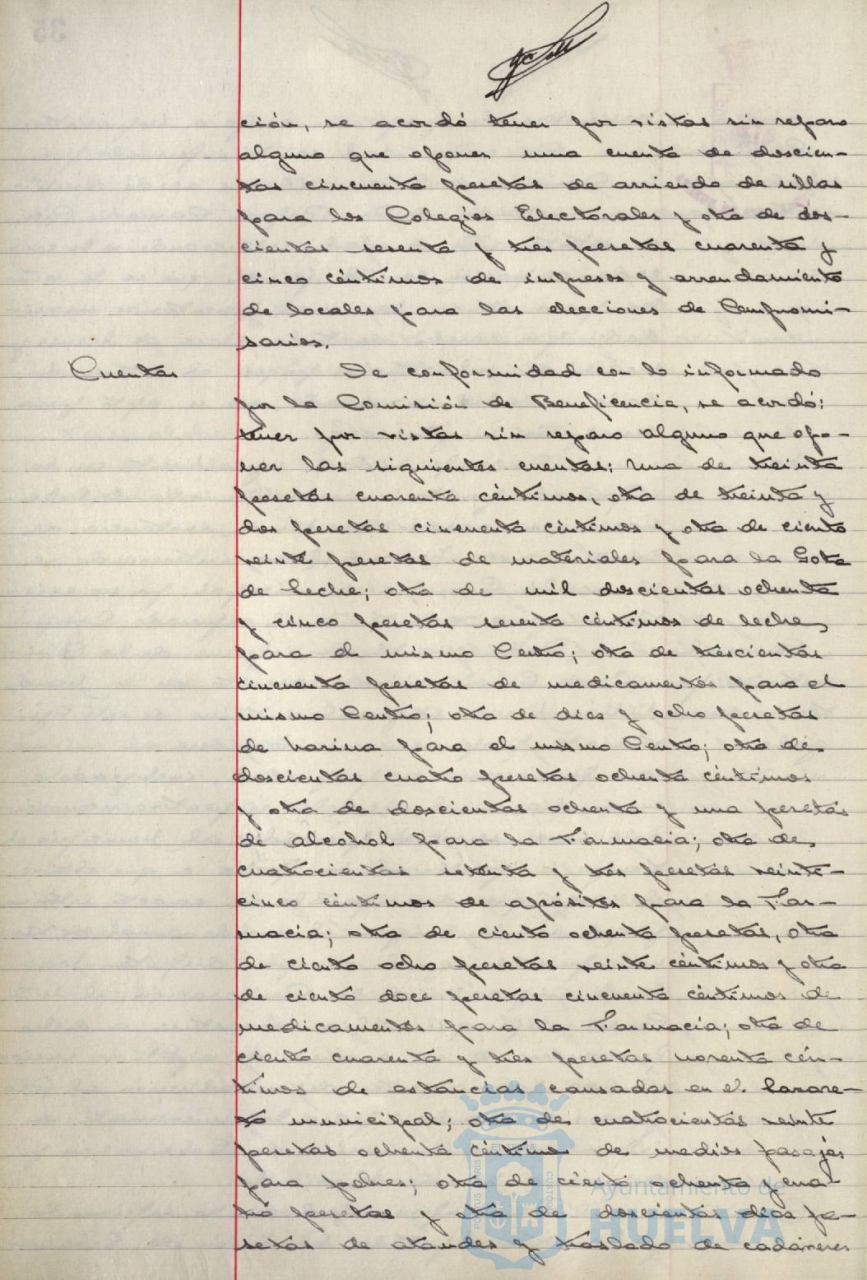 ción, se acordó tener por vistas sin reparo
alguno que oponer una cuenta de doscien-
tas cincuenta pesetas de arriendo de sillas
para los Colegios Electorales y otra de dos-
cientas sesenta y tres pesetas cuarenta y
cinco céntimos de impresos y arrendamiento
de locales para las elecciones de Compromi-
sarios.
Cuentas
De conformidad con lo informado
por la Comisión de Beneficencia, se acordó:
tener por vistas sin reparo alguno que opo-
ner las siguientes cuentas: una de treinta
pesetas cuarenta céntimos, otra de treinta y
dos pesetas cincuenta céntimos y otra de ciento
veinte pesetas de materiales para la Gota
de leche; otra de mil doscientas ochenta
y cinco pesetas sesenta céntimos de leche
para el mismo Centro; otra de trescientas
cincuenta pesetas de medicamentos para el
mismo Centro; otra de diez y ocho pesetas
de harina para el mismo Centro; otra de
doscientas cuatro pesetas ochenta céntimos
y otra de doscientas ochenta y una pesetas
de alcohol para la Farmacia; otra de
cuatrocientas setenta y tres pesetas veinte-
cinco céntimos de apósitos para la Far-
macia; otra de ciento ochenta pesetas, otra
de ciento ocho pesetas veinte céntimos y otra
de ciento doce pesetas cincuenta céntimos de
medicamentos para la Farmacia; otra de
ciento cuarenta y tres pesetas noventa cén-
timos de estancias causadas en el Lazare-
to municipal; otra de cuatrocientas veinte
pesetas ochenta céntimos de medios pasajes
para pobres; otra de ciento ochenta y cua-
tro pesetas y otra de doscientas diez pe-
setas de ataudes y traslado de cadáveres
Ayuntamiento de
HUELVA